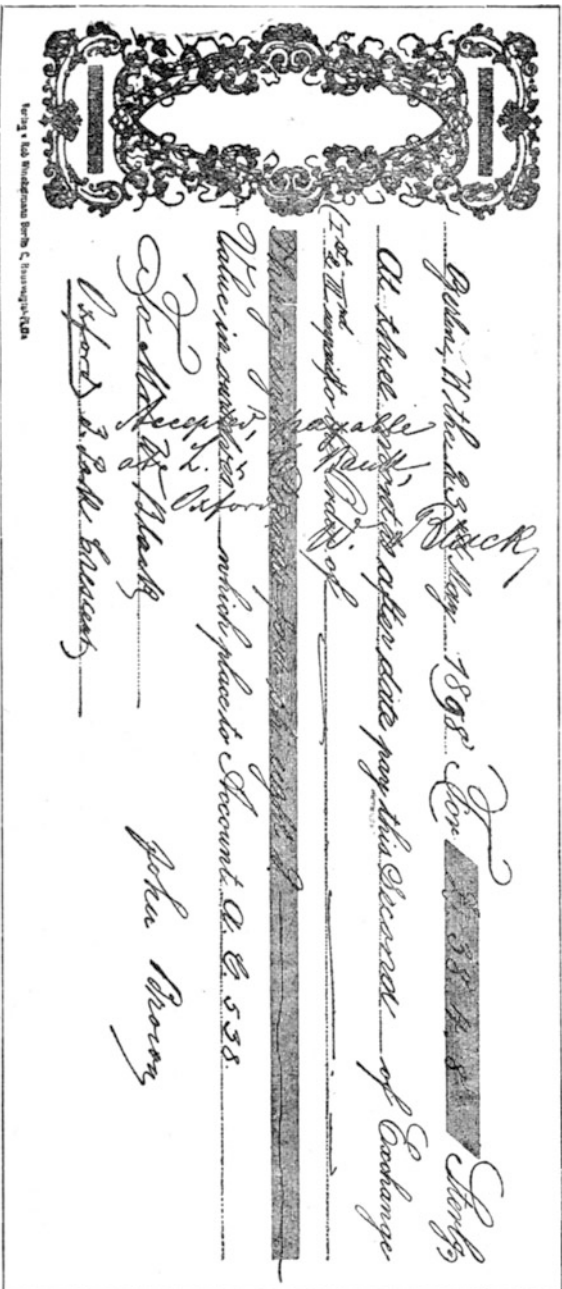 Berlin, W. the 23rd May 1898. For £ 38.4.8 Sterlg
At three months after date pay this Second of Exchange
(Ist & IIIrd unpaid) to the Order of
Thirty eight
Value in ourselves which place to Account A. C. 538.
To Mr. W. Black
Oxford, 3. Park Crescent
John Brown
Accepted, payable
at L. & Bank,
Oxford
W. Black
Verlag v. Rob
Berlin C,